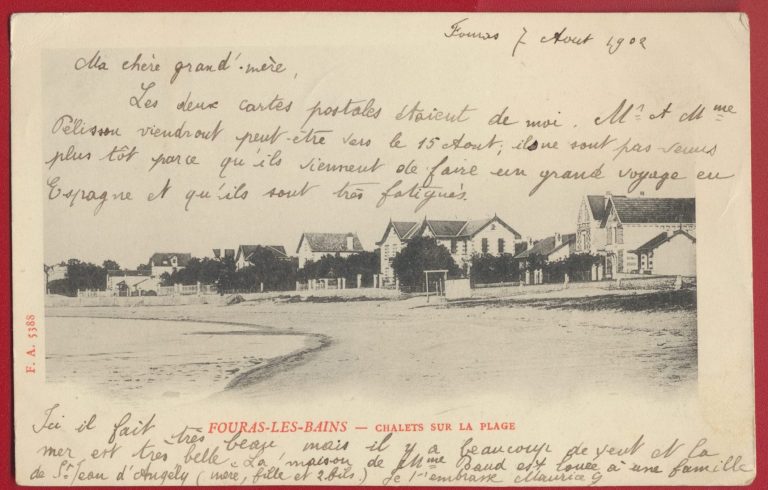 Fouras 7 Aout 1902
Ma chère grand'-mère,
Les deux cartes postales étaient de moi. Mr et Mme
Pélisson viendront peut-être vers le 15 Aout, ils ne sont pas venus
plus tôt parce qu'ils viennent de faire un grand voyage en
Espagne et qu'ils sont très fatigués.
F. A. 5388
FOURAS-LES-BAINS — CHALETS SUR LA PLAGE
Ici il fait très beau mais il y a beaucoup de vent et la
mer est très belle. La maison de Mme Baud est louée à une famille
de St Jean d'Angély (mère, fille et 2 bils). Je t'embrasse Maurice